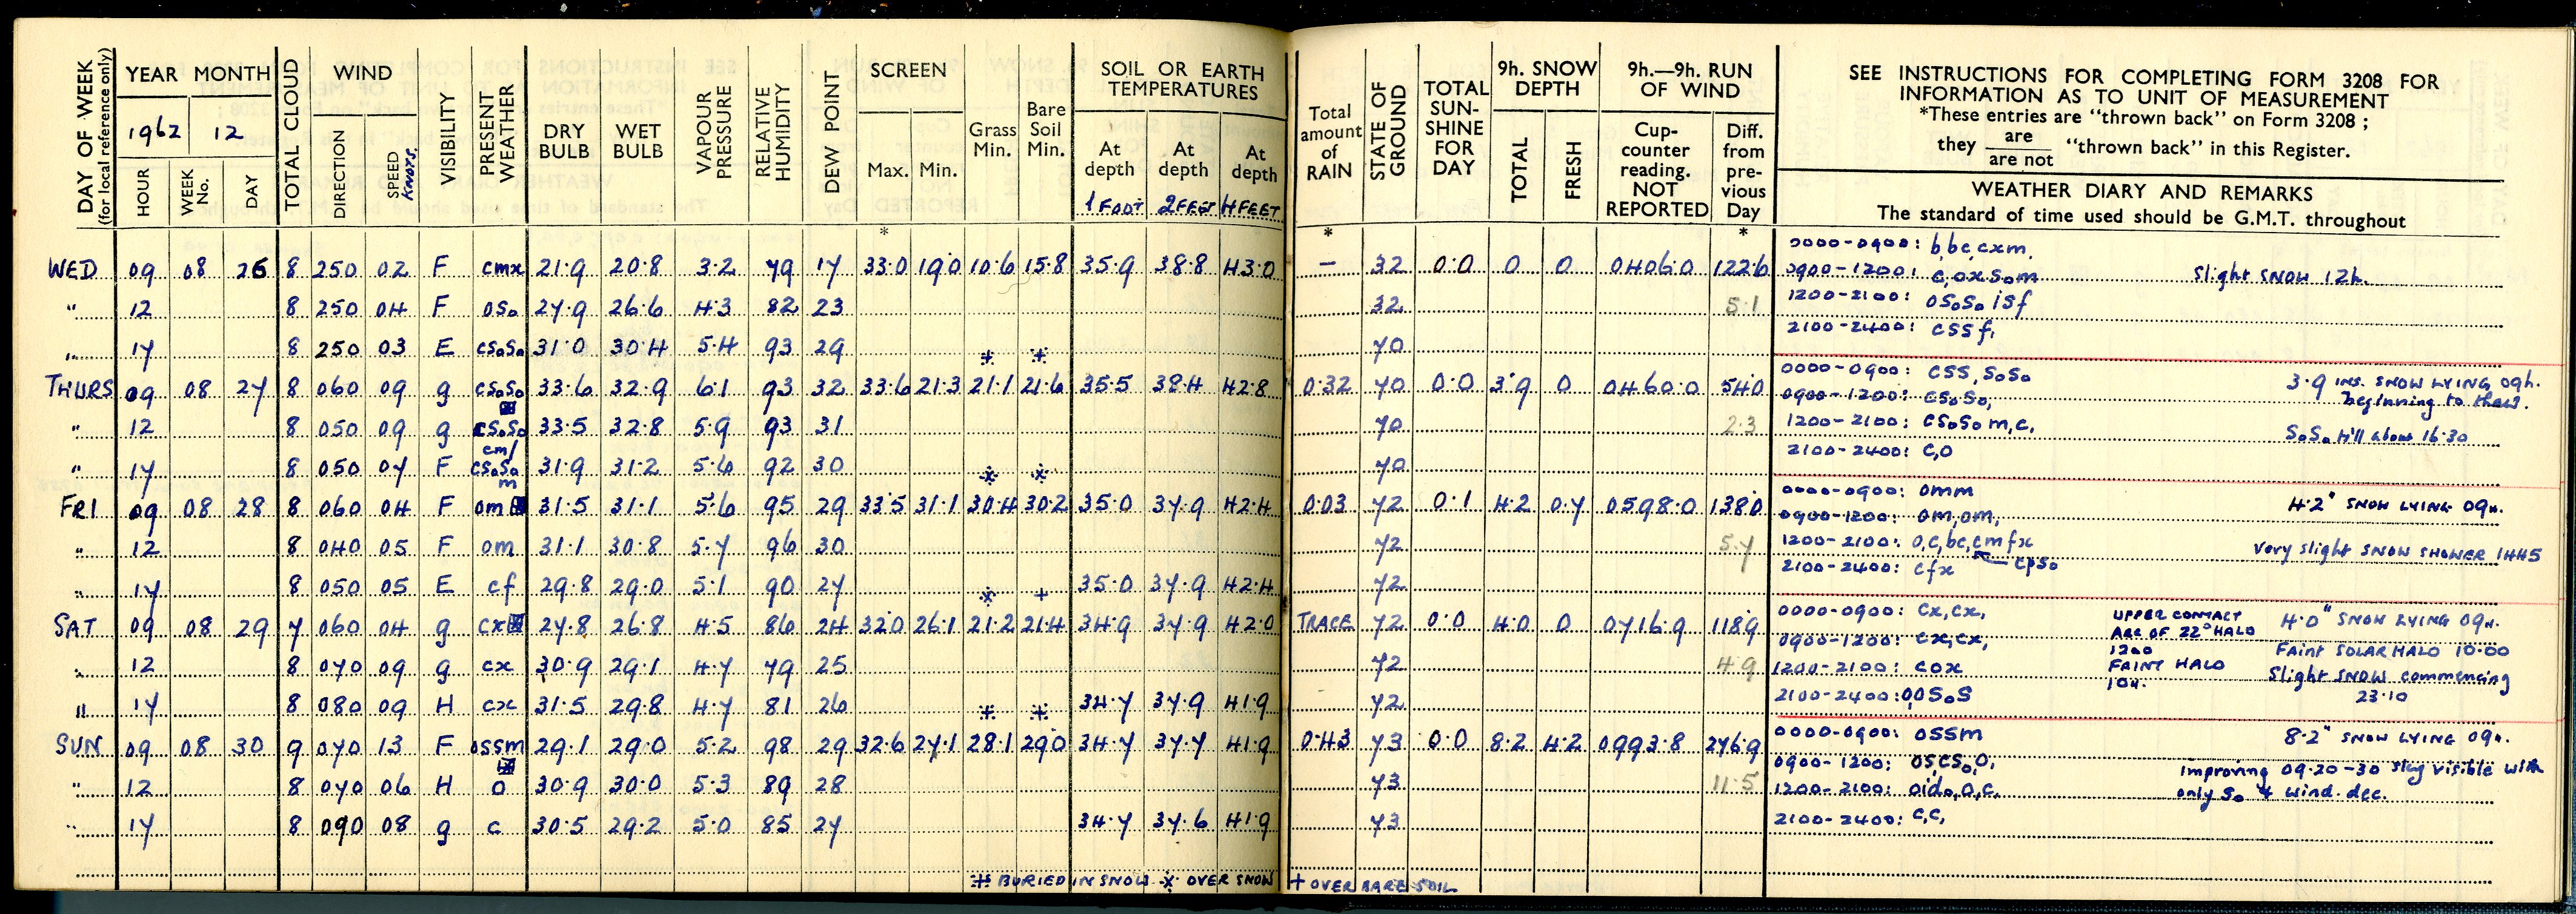 DAY OF WEEK (for local reference only) YEAR MONTH TOTAL CLOUD WIND VISIBILITY PRESENT WEATHER DRY BULB WET BULB VAPOUR PRESSURE RELATIVE HUMIDITY DEW POINT SCREEN Grass Min. Bare Soil Min. SOIL OR EARTH TEMPERATURES
1962 12
HOUR WEEK No. DAY DIRECTION SPEED KNOTS Max. Min. At depth At depth At depth
1 FOOT 2 FEET 4 FEET
Total amount of RAIN STATE OF GROUND TOTAL SUN-SHINE FOR DAY 9h. SNOW DEPTH TOTAL FRESH 9h.—9h. RUN OF WIND Cup-counter reading. NOT REPORTED Diff. from pre-vious Day
SEE INSTRUCTIONS FOR COMPLETING FORM 3208 FOR
INFORMATION AS TO UNIT OF MEASUREMENT
*These entries are "thrown back" on Form 3208 ;
they are / are not "thrown back" in this Register.
WEATHER DIARY AND REMARKS
The standard of time used should be G.M.T. throughout
* * *
WED 09 08 26 8 250 02 F cmx 21.9 20.8 3.2 79 17 33.0 19.0 10.6 15.8 35.9 38.8 43.0 — 32 0.0 0 0 0406.0 122.6 0000-0900: b,bc,cxm.
0900-1200: c,oxSom Slight SNOW 12h.
" 12 8 250 04 F oSo 27.9 26.6 4.3 82 23 32 5.1 1200-2100: oSoSo iSf
2100-2400: cSSf,
" 17 8 250 03 E cSoSo 31.0 30.4 5.4 93 29 70
THURS 09 08 27 8 060 09 g cSoSo 33.6 32.9 6.1 93 32 33.6 21.3 21.1 21.6 35.5 38.4 42.8 0.32 70 0.0 3.9 0 0460.0 54.0 0000-0900: cSS, SoSo 3.9 INS. SNOW LYING 09h.
0900-1200: cSoSo, beginning to thaw.
" 12 8 050 09 g cSoSo 33.5 32.8 5.9 93 31 70 2.3 1200-2100: cSoSo m,c, SoSo till about 16.30
" 17 8 050 07 F cm/cSoSo m 31.9 31.2 5.6 92 30 70 2100-2400: c,o
FRI 09 08 28 8 060 04 F om 31.5 31.1 5.6 95 29 33.5 31.1 30.4 30.2 35.0 37.9 42.4 0.03 72 0.1 4.2 0.7 0598.0 138.0 0000-0900: omm 4.2" SNOW LYING 09H.
0900-1200: om,om,
" 12 8 040 05 F om 31.1 30.8 5.7 96 30 72 5.7 1200-2100: o,c,bc,cmfx cpSo Very slight SNOW SHOWER 1445
2100-2400: cfx
" 17 8 050 05 E cf 29.8 29.0 5.1 90 27 35.0 37.9 42.4 72
SAT 09 08 29 7 060 04 g cx 27.8 26.8 4.5 86 24 32.0 26.1 21.2 21.4 34.9 37.9 42.0 TRACE 72 0.0 4.0 0 0716.9 118.9 0000-0900: cx,cx, UPPER CONTACT ARC OF 22° HALO 1200 4.0" SNOW LYING 09H.
0900-1200: cx,cx, FAINT SOLAR HALO 10.00
" 12 8 070 09 g cx 30.9 29.1 4.7 79 25 72 4.9 1200-2100: cox FAINT HALO 10H. Slight SNOW commencing 23.10
" 17 8 080 09 H cx 31.5 29.8 4.7 81 26 34.7 37.9 41.9 72 2100-2400: o,oSoS
SUN 09 08 30 9 070 13 F oSSm 29.1 29.0 5.2 98 29 32.6 27.1 28.1 29.0 34.7 37.7 41.9 0.43 73 0.0 8.2 4.2 0993.8 276.9 0000-0900: oSSm 8.2" SNOW LYING 09H.
0900-1200: oS,cSo,o, Improving 09.20-30 sky visible with
" 12 8 070 06 H o 30.9 30.0 5.3 89 28 73 11.5 1200-2100: oido,o,c, only So & wind dec.
" 17 8 090 08 g c 30.5 29.2 5.0 85 27 34.7 37.6 41.9 73 2100-2400: c,c,
BURIED IN SNOW OVER SNOW + OVER BARE SOIL